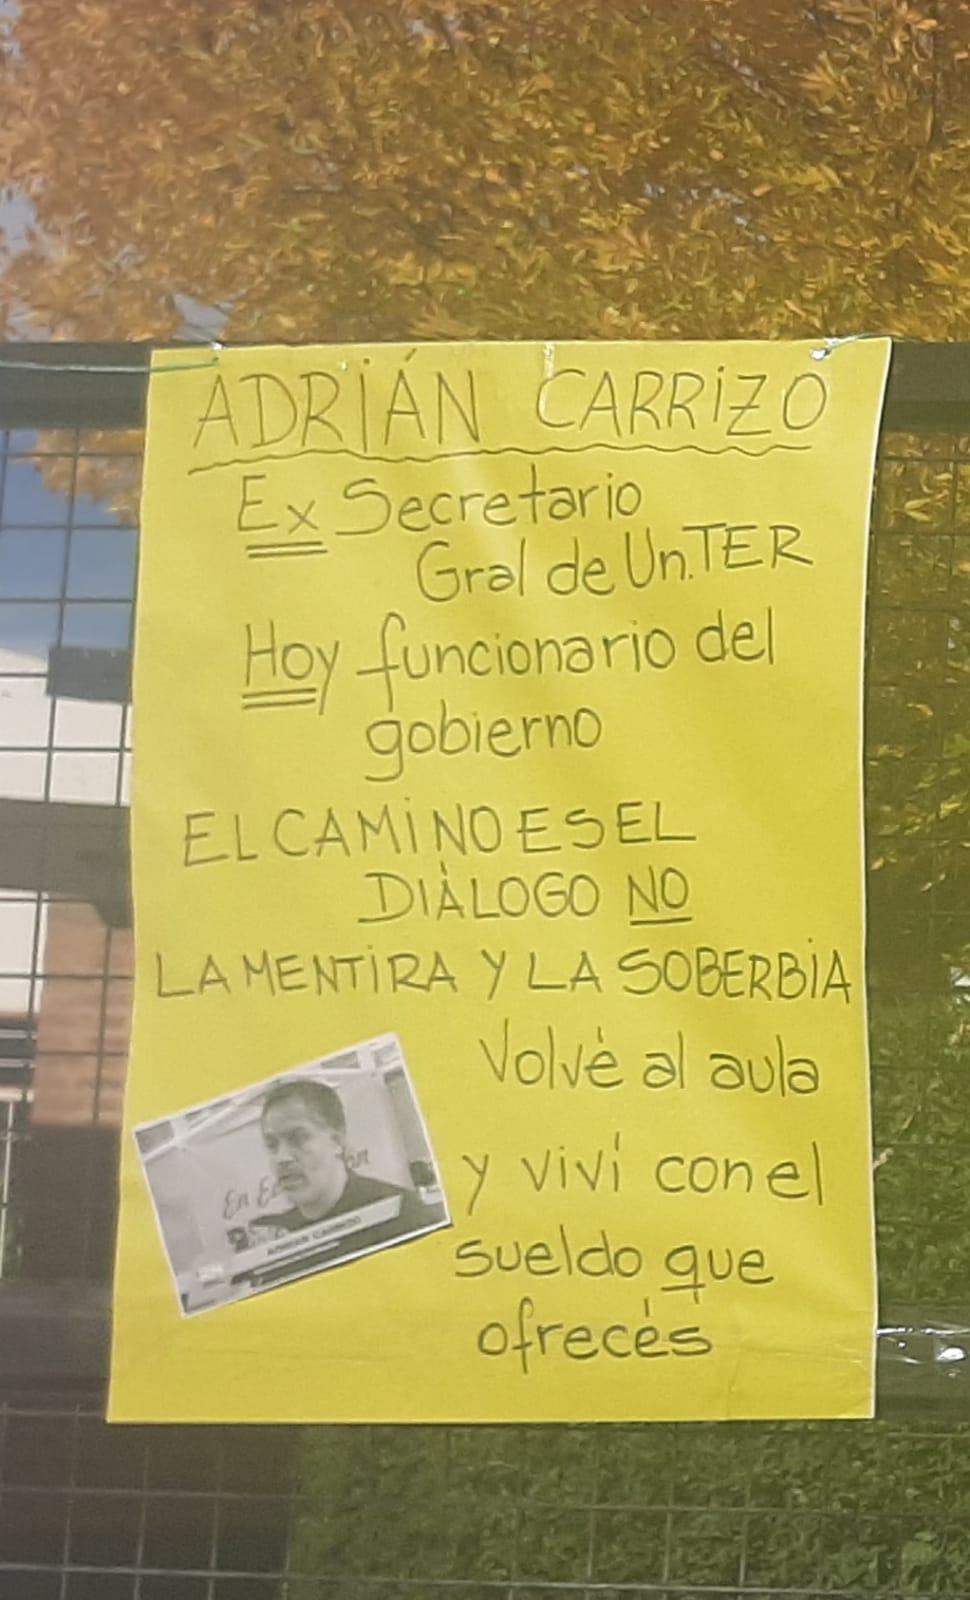 ADRIÁN CARRIZO
Ex Secretario
Gral de Un.TER
Hoy funcionario del
gobierno
EL CAMINO ES EL
DIÁLOGO NO
LA MENTIRA Y LA SOBERBIA
Volvé al aula
y viví con el
sueldo que
ofrecés
En
ADRIÁN CARRIZO